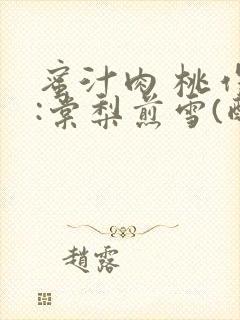 蜜汁肉桃作
:棠梨煎雪(
趙露